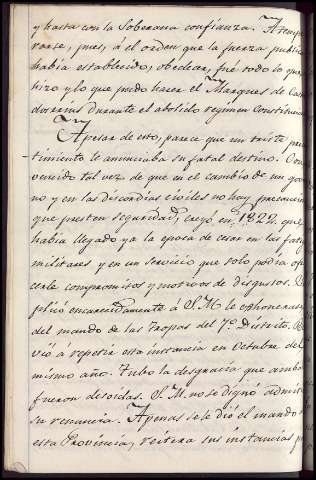 y hasta con la Soberana confianza. Atempe
rarse, pues, á el orden que la fuerza publica
habia establecido, obedecer, fué todo lo que
hizo y lo que pudo hacer el Marques de Cas
dosrius durante el abolido regimen Constitucio
Apesar de esto, parece que un triste presen
timiento le anunciaba su fatal destino. Con
vencido tal vez de que en el cambio de un gov
no y en las discordias civiles no hay precaucio
que presten seguridad, creyó en 1822. que
habia llegado ya la epoca de cesar en las fatig
militares y en un servicio que solo podia ofre
cerle compromisos y motivos de disgustos. Su
plicó encarecidamente á S. M. le exhonerase
del mando de las tropas del 7º. distrito. Vol
vió á repetir esta instancia en Octubre del
mismo año. Tubo la desgracia que ambas
fueron desoidas. S. M. no se dignó admitir
su renuncia. Apenas se le dió el mando de
esta Provincia, reitera sus instancias p